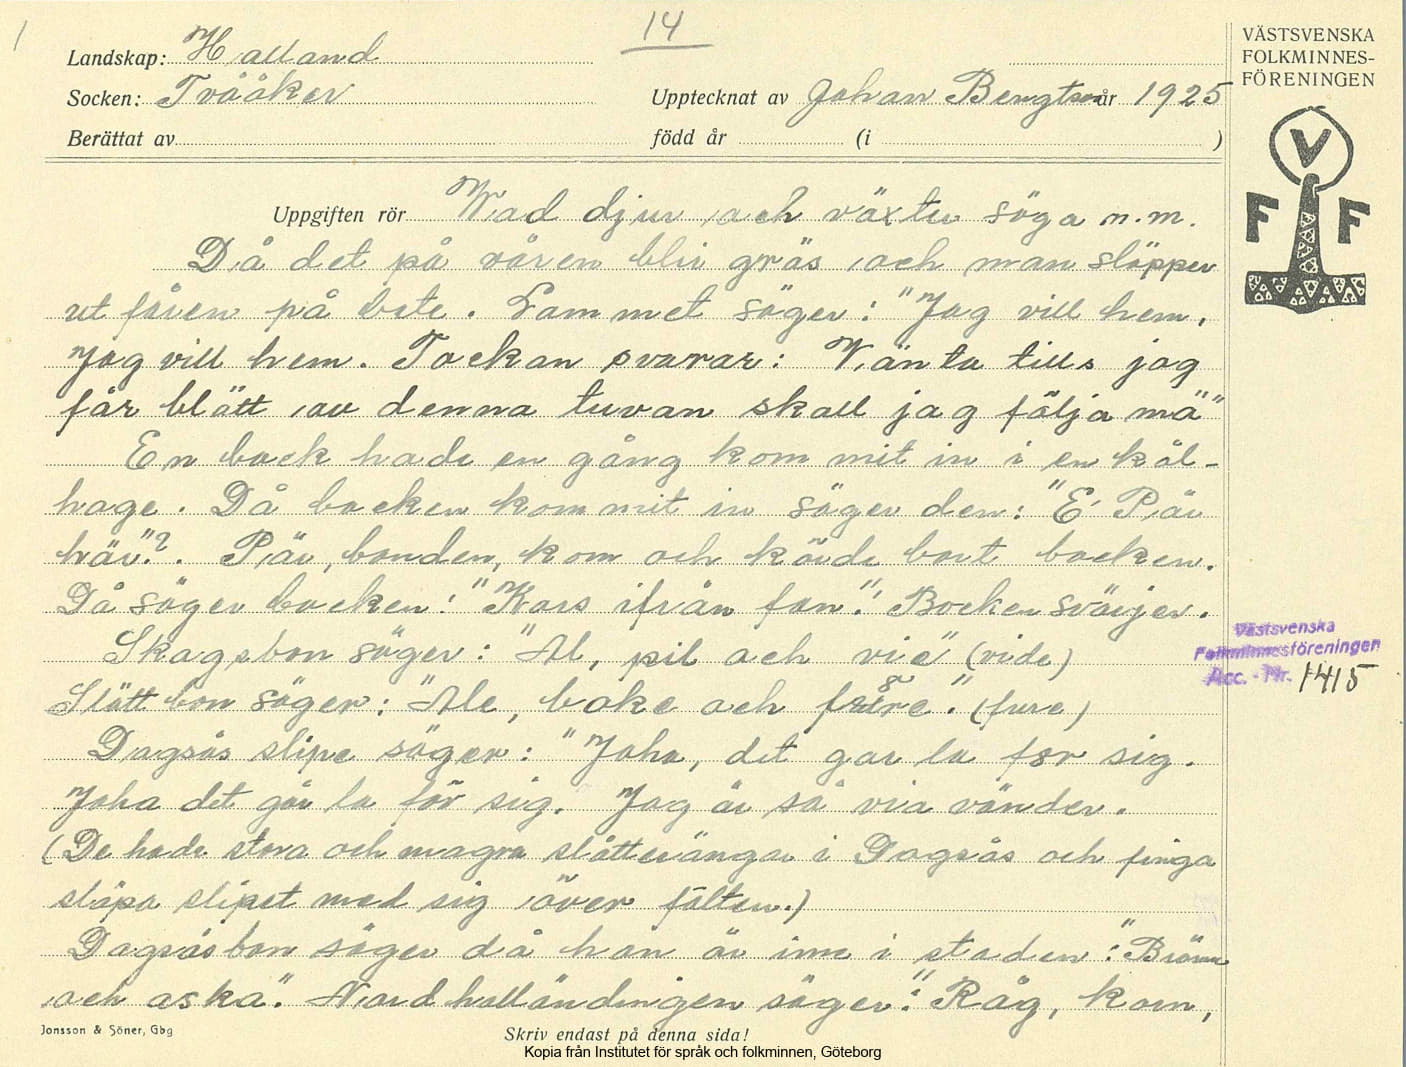 14
Landskap: Halland
Socken: Tvååker
Upptecknat av Johan Bengtson år 1925
Berättat av
född år (i )
VÄSTSVENSKA
FOLKMINNES-
FÖRENINGEN
V
F F
Uppgiften rör Wad djur och växter säga n.m.
Då det på våren blir gräs och man släpper
ut fåren på bete. Lammet säger: "Jag vill hem,
Jag vill hem. Tackan svarar: Vänta tills jag
får blätt av denna tuvan skall jag följa mä"
En bock hade en gång kommit in i en kål-
hage. Då bocken kommit in säger den: "E Pär
här"?. Pär, bonden, kom och körde bort bocken.
Då säger bocken: "Kors ifrån fan". Bocken svärjer.
Skagsbon säger: "Al, pil och vie" (vide)
Slättbon säger: "Ale, boke och fyre." (fure)
Dagsås slipe säger: "Joha, det gar la for sig.
Joha det går la för sig. Jag är så via vänder.
(De hade stora och magra slåtterängar i Dagsås och finga
släpa slipet med sig över fälten.)
Dagsåsbon säger då han är inne i staden: "Bränn
och aska". Nordhalländingen säger: "Råg, korn,
Västsvenska
Folkminnesföreningen
Acc. - Nr. 1415
Jonsson & Söner, Gbg
Skriv endast på denna sida!
Kopia från Institutet för språk och folkminnen, Göteborg